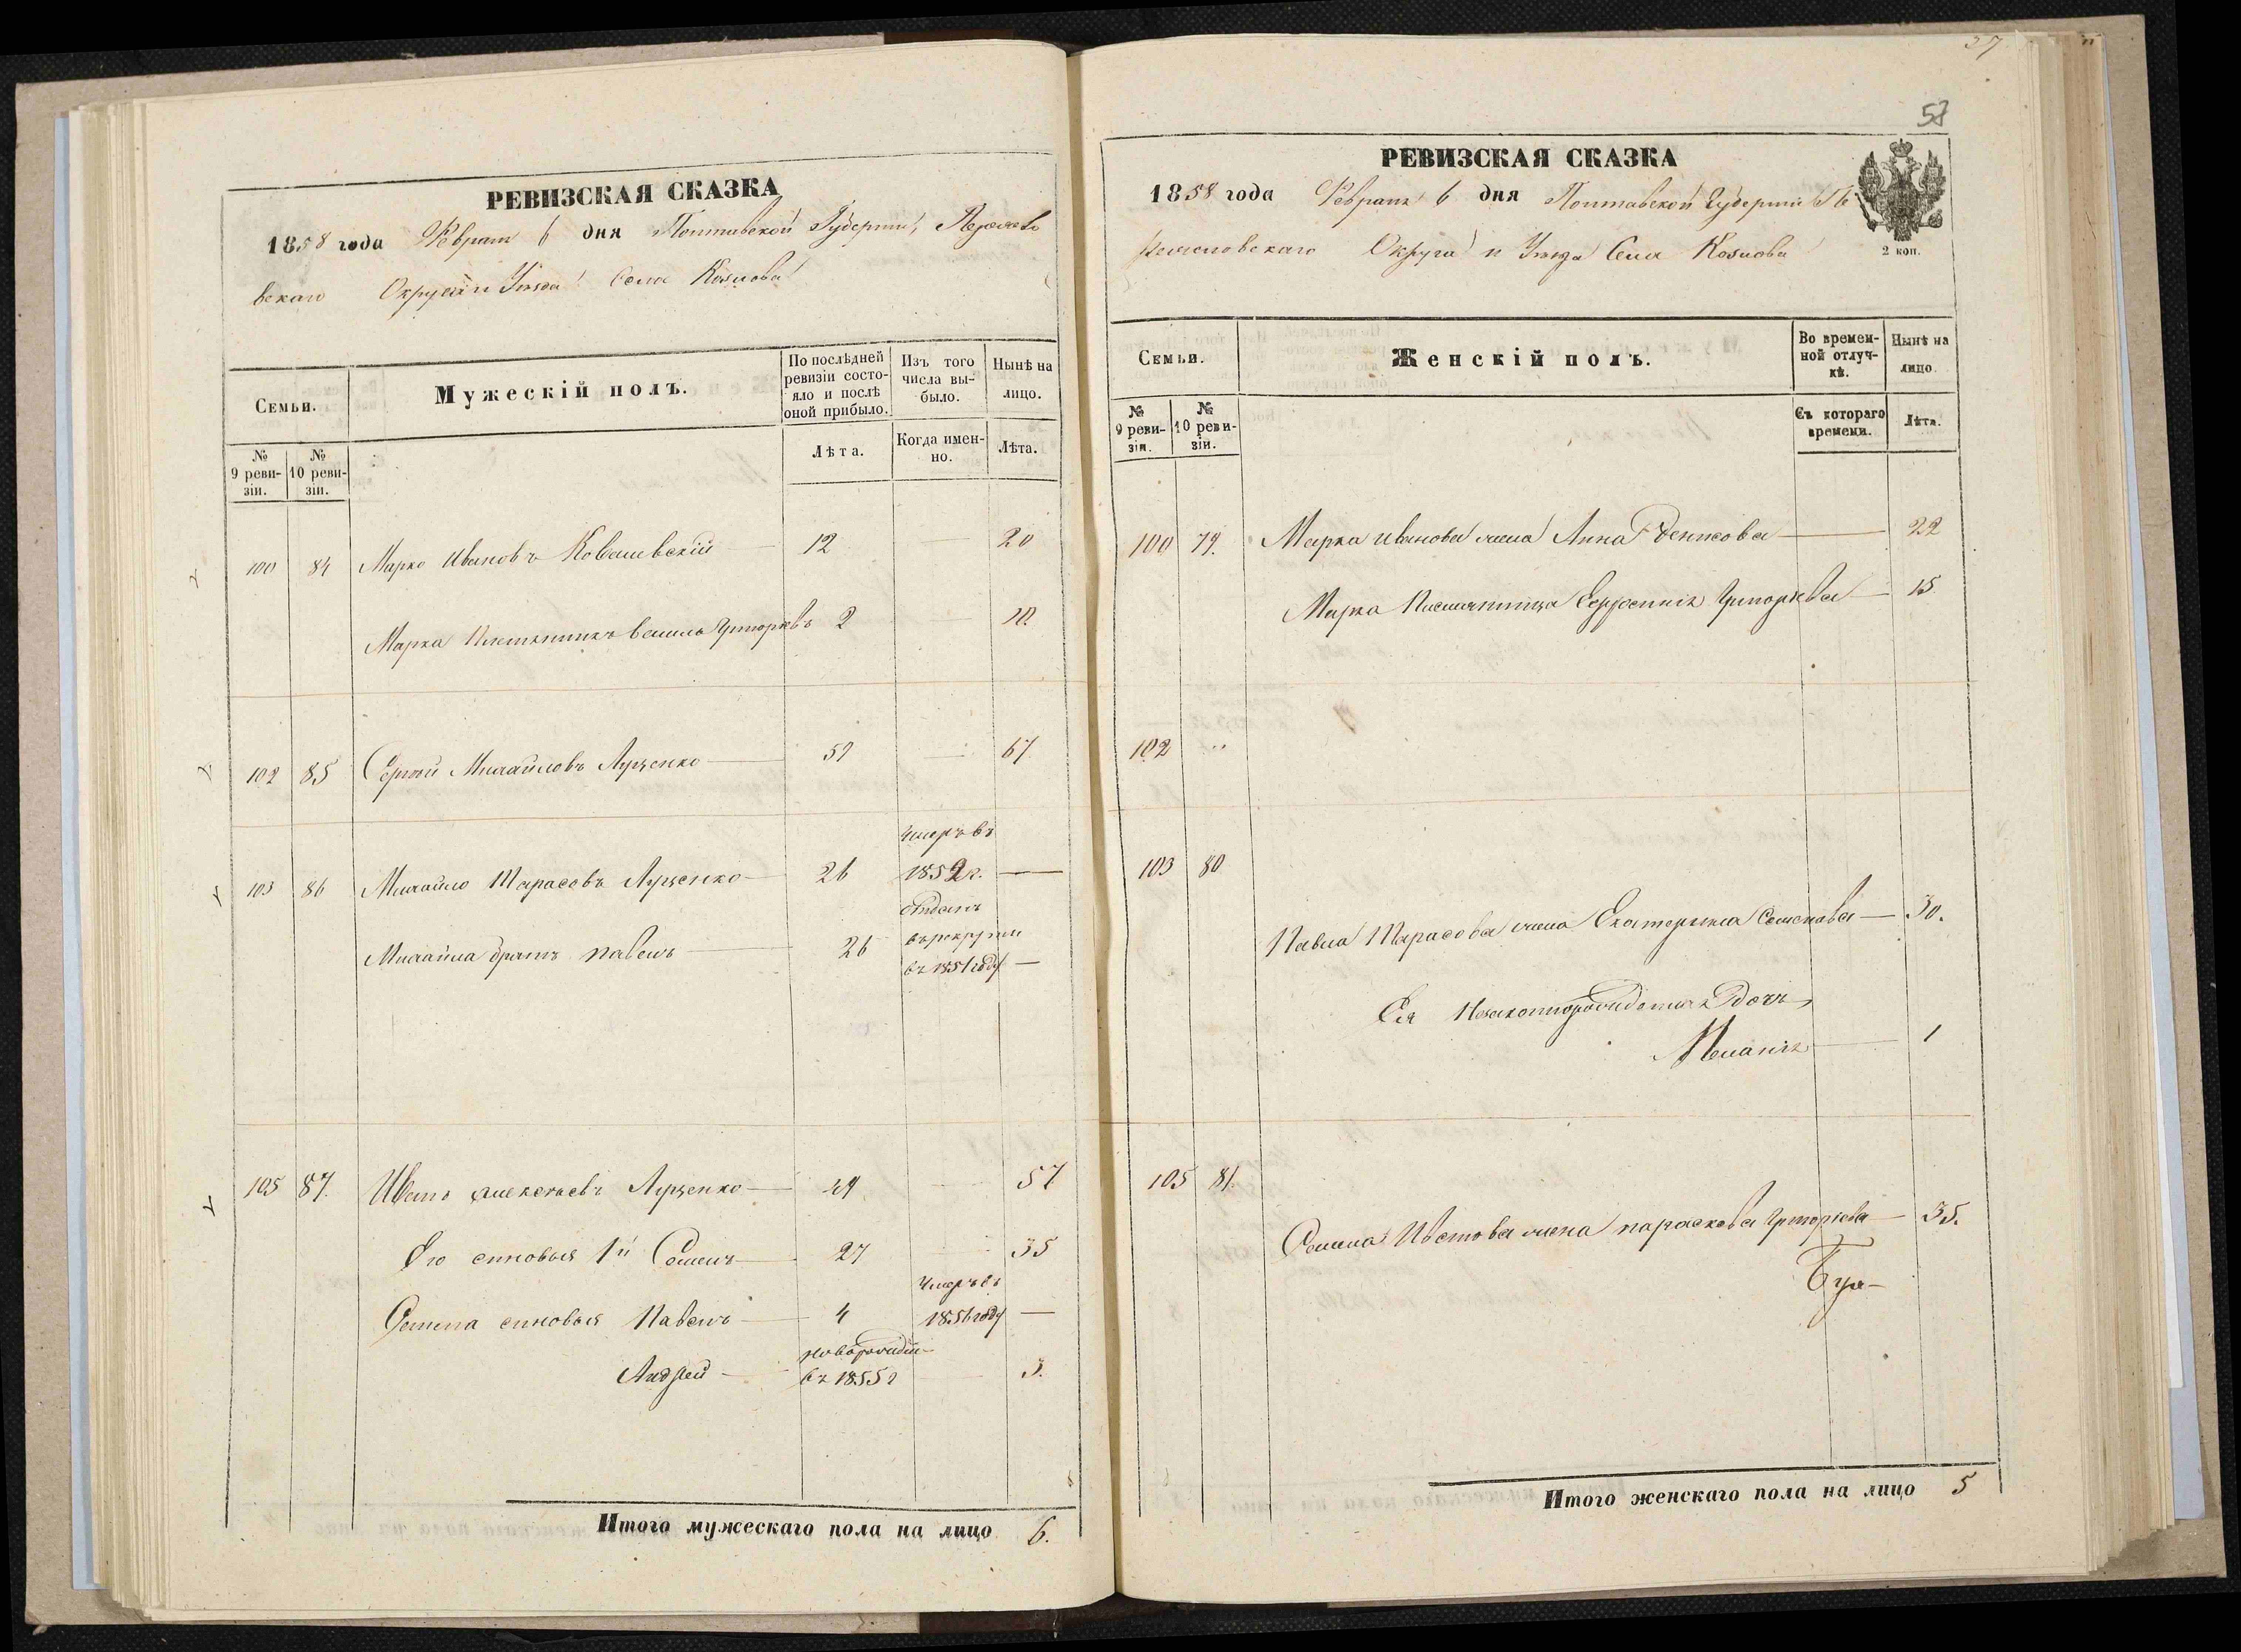 РЕВИЗСКАЯ СКАЗКА
1858 года Февраля 6 дня Полтавской Губерніи, Переясло
вскаго Округа и Уѣзда Села Козлова
Семьи.
Мужескій полъ.
По послѣдней ревизіи состо-
яло и послѣ оной прибыло.
Изъ того числа вы-
было.
Нынѣ на лицо.
№ 9 реви-
зіи.
№ 10 реви-
зіи.
Лѣта.
Когда имен-
но.
Лѣта.
100 84 Марко Ивановъ Ковалевскій 12 — 20
Марка Племянникъ Василь Григорьевъ 2 — 10.
102 85 Сергѣй Михайловъ Луценко 59 — 67
умеръ въ
103 86 Михайло Тарасовъ Луценко 26 1852 г. —
отданъ
въ рекруты
Михайла братъ Павелъ 26 въ 1851 году —
105 87. Иванъ Алексѣевъ Луценко 49 — 57
Его сыновья 1й Семенъ 27 35
умеръ въ
Семена сыновья Павелъ 4 1851 году —
новорожден
Андрей въ 1855 г 3.
Итого мужескаго пола на лицо 6.
57
РЕВИЗСКАЯ СКАЗКА
1858 года Февраля 6 дня Полтавской Губерніи Пе
реясловскаго Округа и Уѣзда Села Козлова
2 коп.
Семьи.
Женскій полъ.
Во времен-
ной отлуч-
кѣ.
Нынѣ на лицо
№ 9 реви-
зіи.
№ 10 реви-
зіи.
Съ котораго времени.
Лѣта.
100 79. Марка Иванова жена Анна Денисова — 22
Марка Племянница Ефросинія Григорьева — 15
102 "
103 80
Павла Тарасова жена Екатерина Семенова — 30.
Ея Незаконнорожденная дочь
Меланія 1
105 81.
Семена Иванова жена Параскева Григорьева — 35.
Итого женскаго пола на лицо 5